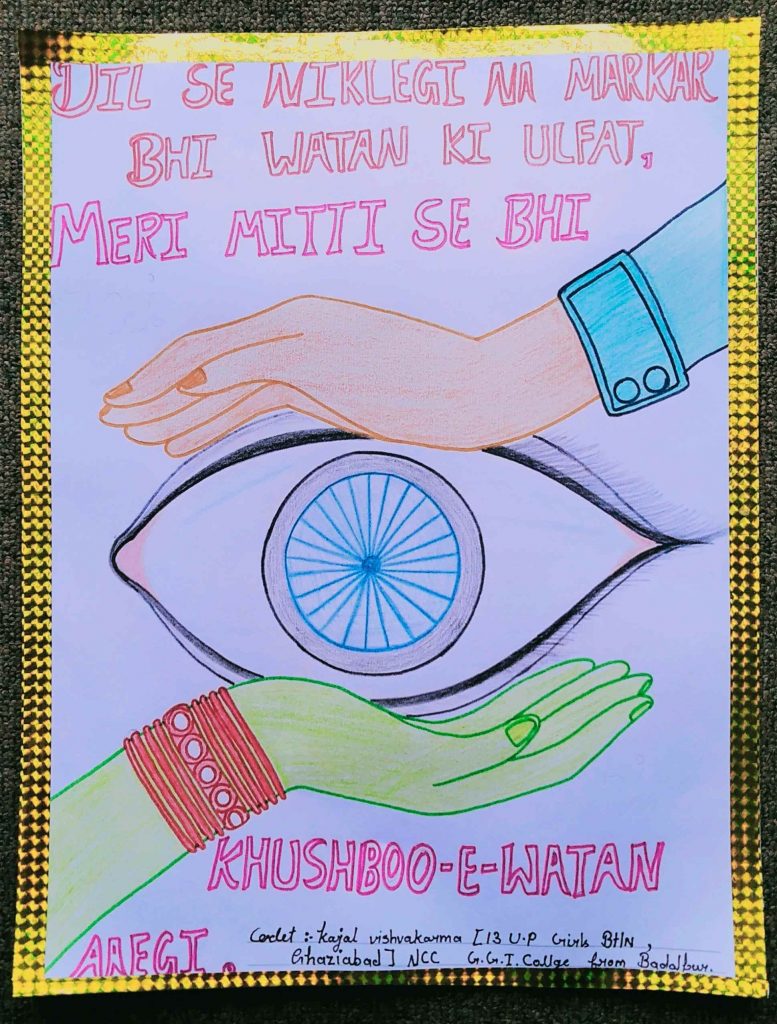 DIL SE NIKLEGI NA MARKAR
BHI WATAN KI ULFAT,
MERI MITTI SE BHI
KHUSHBOO-E-WATAN
AAEGI.
Cadet :- Kajal vishvakarma [13 U.P Girls BtlN,
Ghaziabad] NCC G.G.I. Collge from Badalpur.